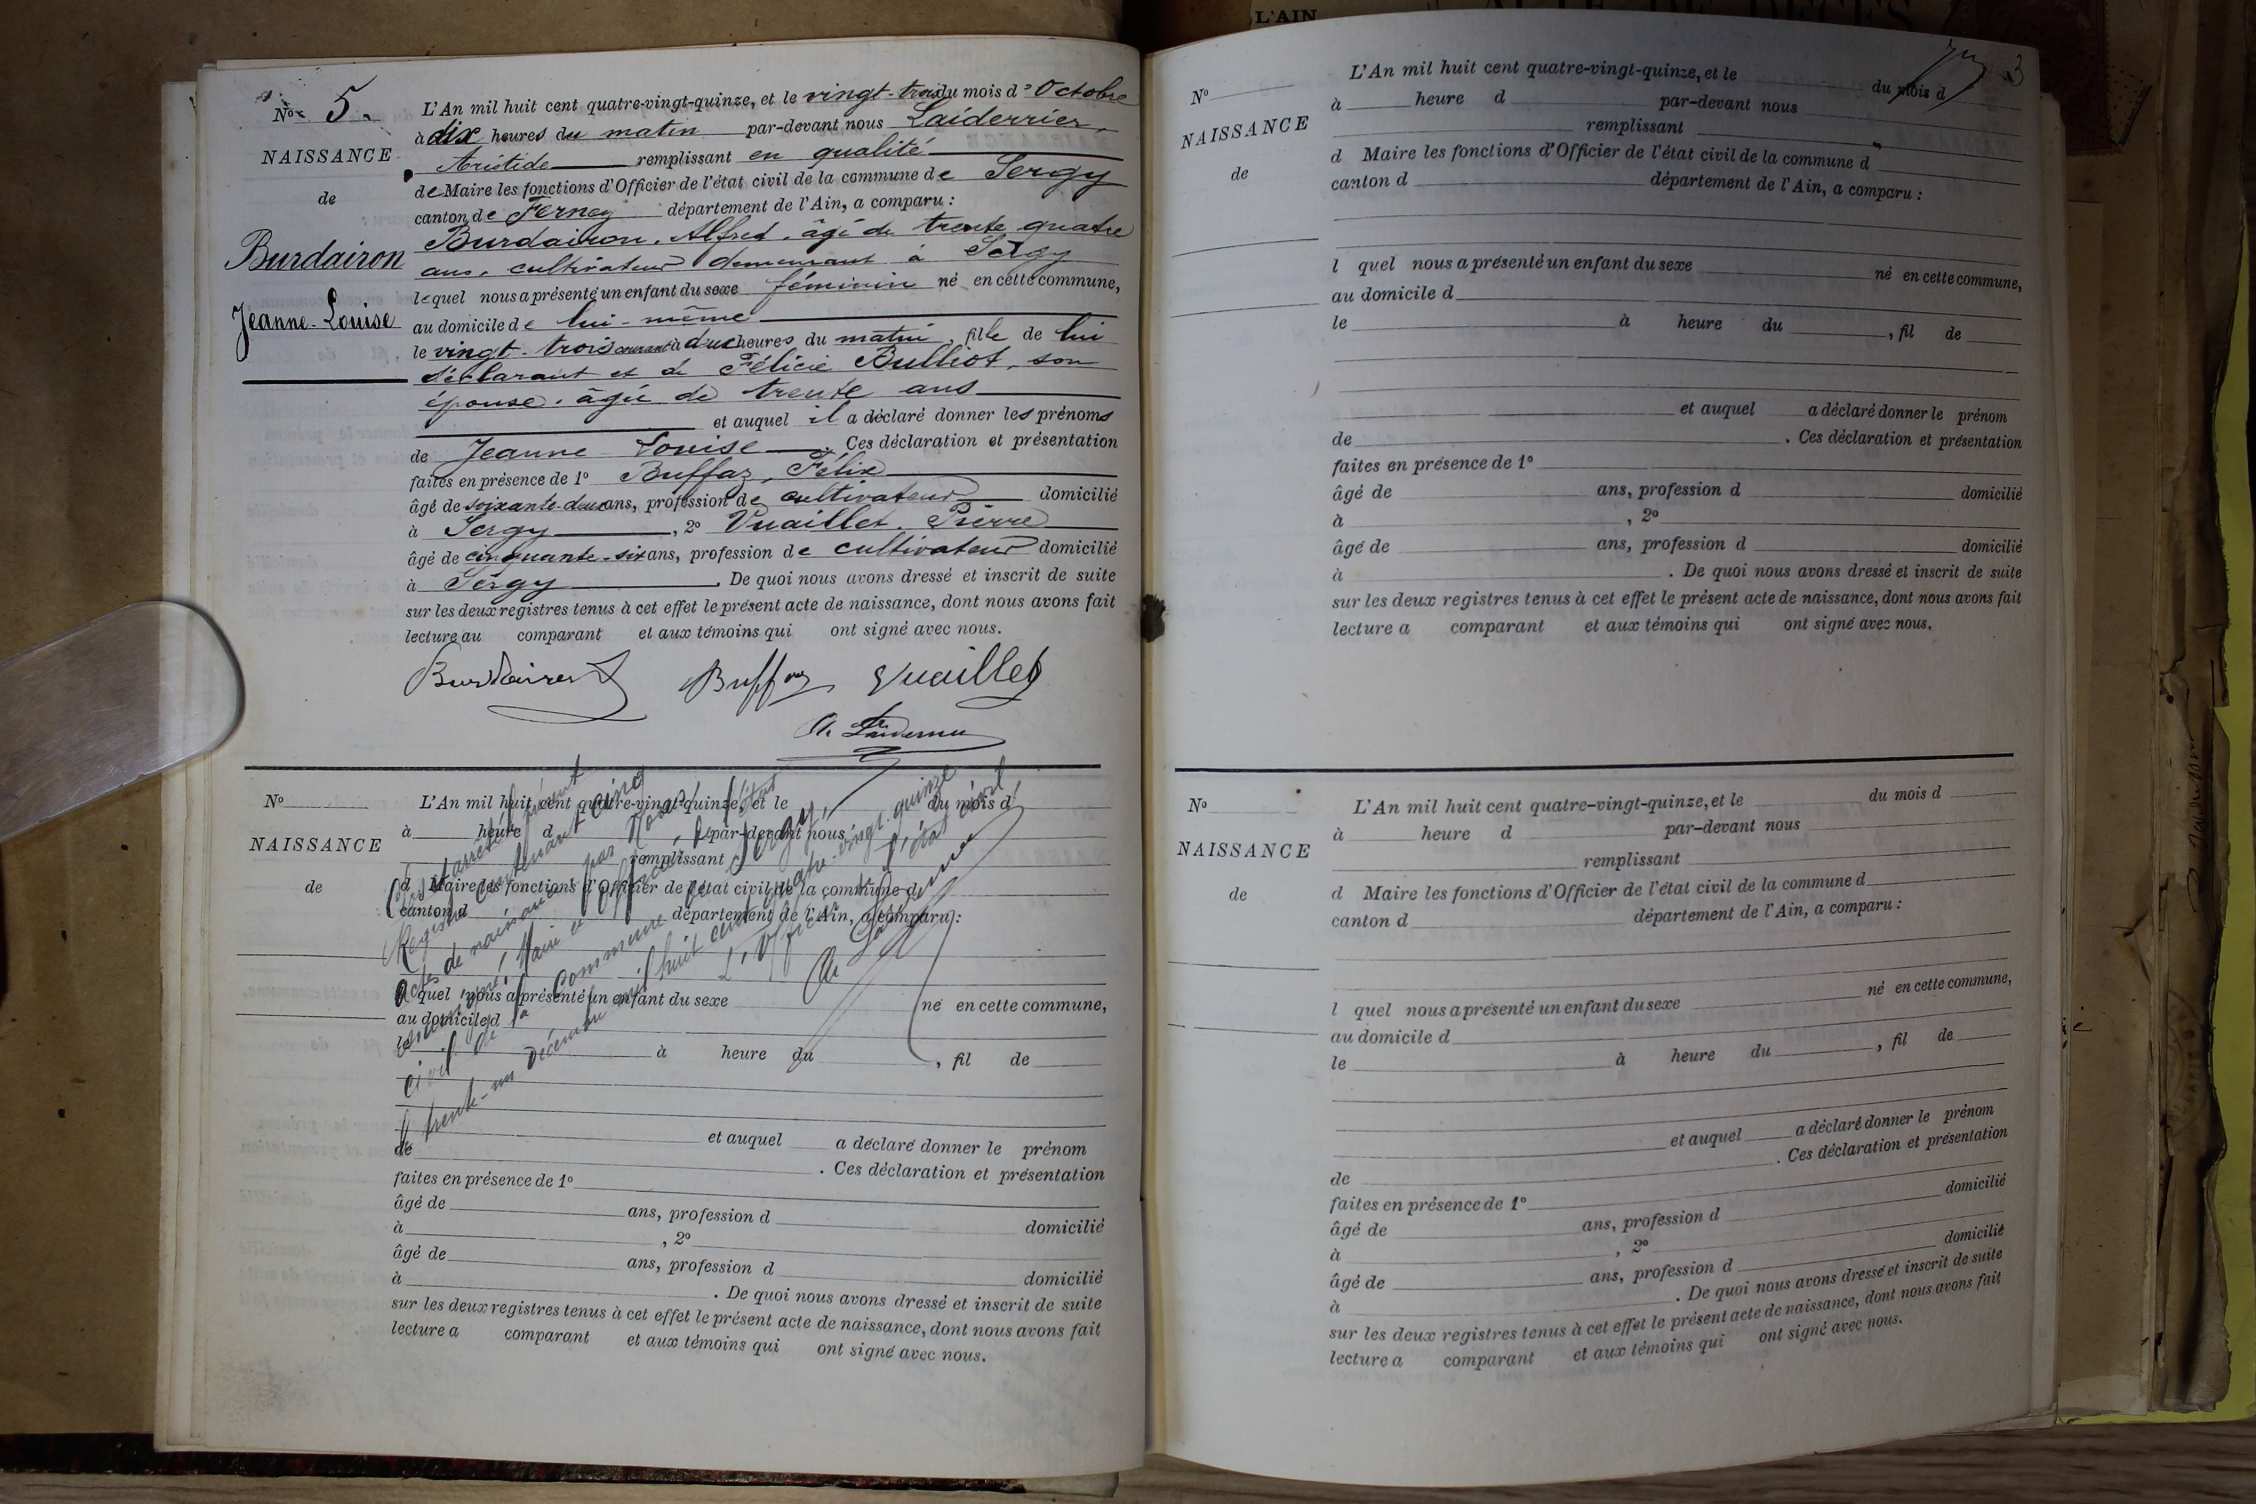 N° 5.
NAISSANCE
de
Burdairon
Jeanne-Louise
L'An mil huit cent quatre-vingt-quinze, et le vingt-trois du mois d'Octobre
à dix heures du matin par-devant nous Laiderrier,
Aristide remplissant en qualité
de Maire les fonctions d'Officier de l'état civil de la commune de Sergy
canton de Ferney département de l'Ain, a comparu :
Burdairon, Alfred, âgé de trente quatre
ans, cultivateur demeurant à Sergy
lequel nous a présenté un enfant du sexe féminin né en cette commune,
au domicile de lui-même
le vingt-trois courant à deux heures du matin, fille de lui
déclarant et de Félicie Bulliot, son
épouse, âgée de trente ans
et auquel il a déclaré donner les prénoms
de Jeanne Louise. Ces déclaration et présentation
faites en présence de 1° Buffaz, Félix
âgé de soixante-deux ans, profession de cultivateur domicilié
à Sergy, 2° Vuaillet, Pierre
âgé de cinquante-six ans, profession de cultivateur domicilié
à Sergy. De quoi nous avons dressé et inscrit de suite
sur les deux registres tenus à cet effet le présent acte de naissance, dont nous avons fait
lecture au comparant et aux témoins qui ont signé avec nous.
Burdairon Buffaz Vuaillet
A. Laiderrier
N°
NAISSANCE
de
L'An mil huit cent quatre-vingt-quinze, et le du mois d
à heure d par-devant nous
remplissant
d Maire les fonctions d'Officier de l'état civil de la commune d
canton d département de l'Ain, a comparu :
l quel nous a présenté un enfant du sexe né en cette commune,
au domicile d
le à heure du , fil de
et auquel a déclaré donner le prénom
de . Ces déclaration et présentation
faites en présence de 1°
âgé de ans, profession d domicilié
à , 2°
âgé de ans, profession d domicilié
à . De quoi nous avons dressé et inscrit de suite
sur les deux registres tenus à cet effet le présent acte de naissance, dont nous avons fait
lecture a comparant et aux témoins qui ont signé avec nous.
Clos et arrêté le présent
Registre contenant cinq
actes de naissance par Nous
soussigné, Maire et Officier de l'état
civil de la Commune de Sergy,
le trente-un Décembre mil huit cent quatre-vingt-quinze
L'Officier de l'état civil
A. Laiderrier
L'AIN
ACTE DE DÉCÈS
3
N°
NAISSANCE
de
L'An mil huit cent quatre-vingt-quinze, et le du mois d
à heure d par-devant nous
remplissant
d Maire les fonctions d'Officier de l'état civil de la commune d
canton d département de l'Ain, a comparu :
l quel nous a présenté un enfant du sexe né en cette commune,
au domicile d
le à heure du , fil de
et auquel a déclaré donner le prénom
de . Ces déclaration et présentation
faites en présence de 1°
âgé de ans, profession d domicilié
à , 2°
âgé de ans, profession d domicilié
à . De quoi nous avons dressé et inscrit de suite
sur les deux registres tenus à cet effet le présent acte de naissance, dont nous avons fait
lecture a comparant et aux témoins qui ont signé avec nous.
N°
NAISSANCE
de
L'An mil huit cent quatre-vingt-quinze, et le du mois d
à heure d par-devant nous
remplissant
d Maire les fonctions d'Officier de l'état civil de la commune d
canton d département de l'Ain, a comparu :
l quel nous a présenté un enfant du sexe né en cette commune,
au domicile d
le à heure du , fil de
et auquel a déclaré donner le prénom
de . Ces déclaration et présentation
faites en présence de 1°
âgé de ans, profession d domicilié
à , 2°
âgé de ans, profession d domicilié
à . De quoi nous avons dressé et inscrit de suite
sur les deux registres tenus à cet effet le présent acte de naissance, dont nous avons fait
lecture a comparant et aux témoins qui ont signé avec nous.